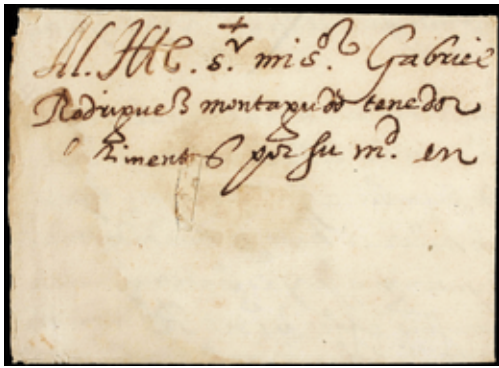 +
Al Ille. s.r mi s.or Gabriel
Rodriguez montagudo tenedor
bimentos por su md. en